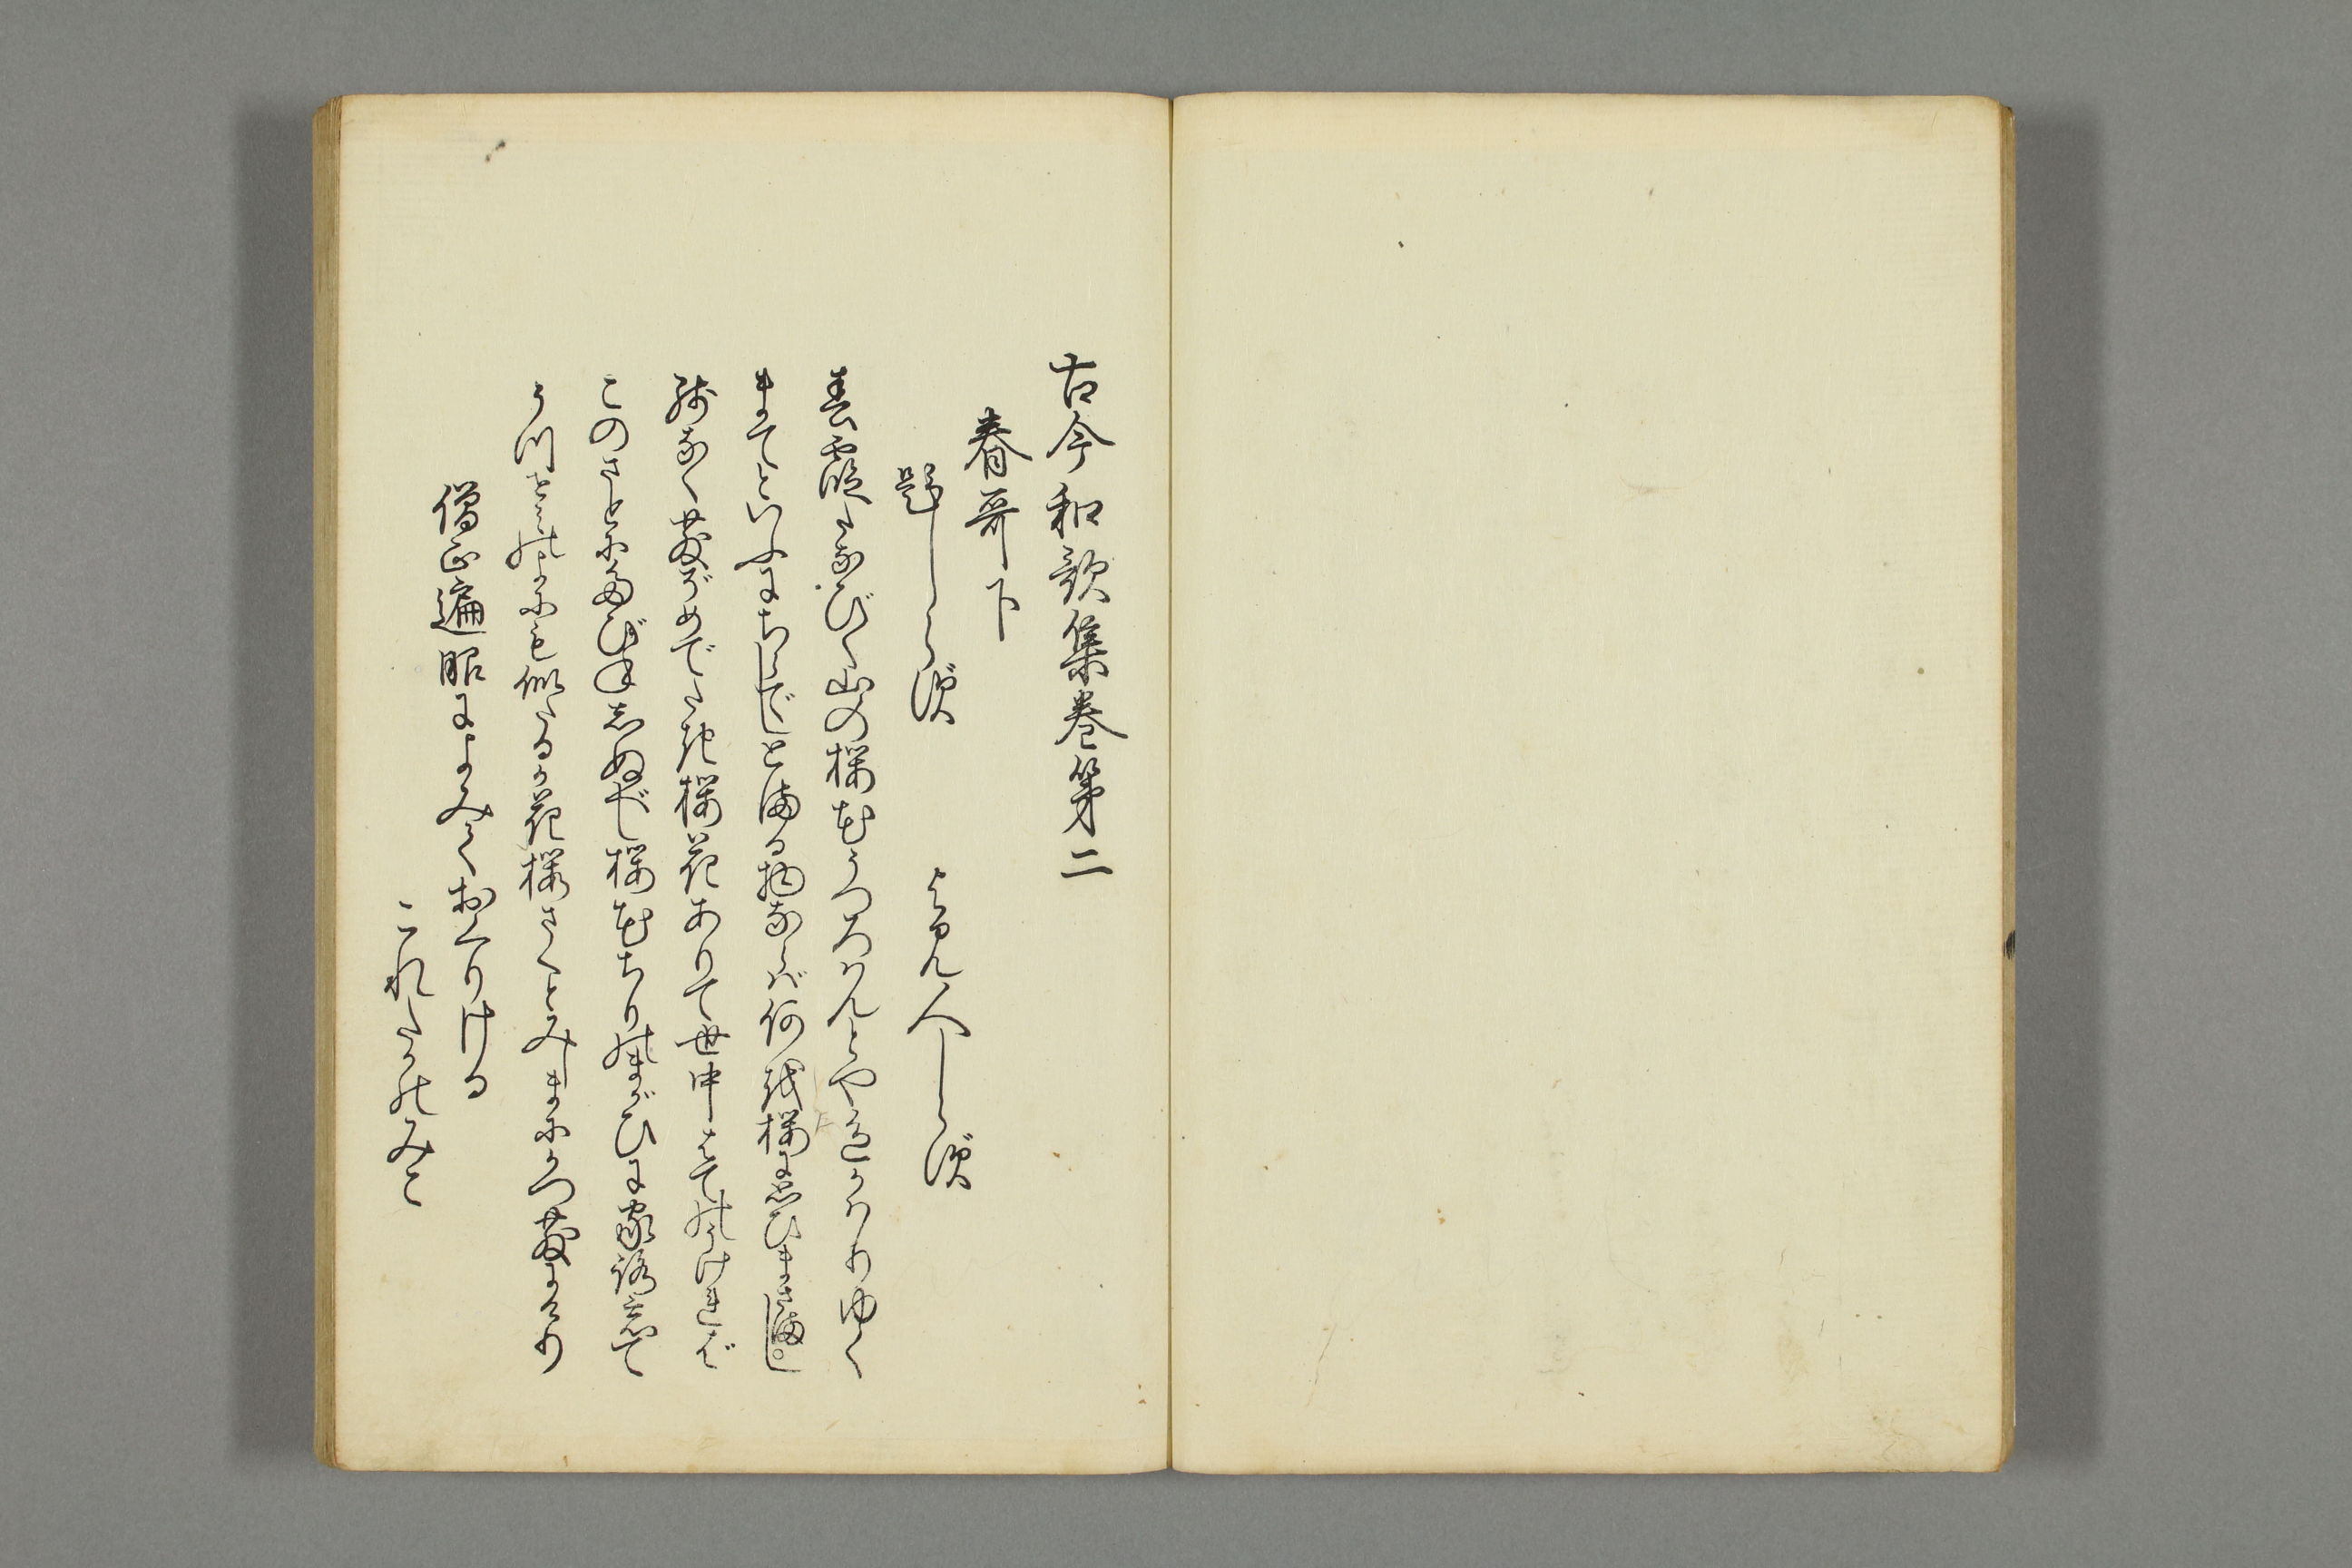 古今和歌集巻第二
春哥下
題しらず
よみ人しらず
春霞たなびく山の桜花うつろはんとや色かはりゆく
まてといふにちらでしとまる物ならば何を桜に思ひまさまし
残なく散ぞめでたき桜花ありて世中はてのうければ
このさとにたびねしぬべし桜花ちりのまがひに家路忘て
うつせみの世にも似たるか花桜さくとみしまにかつ散にけり
僧正遍昭によみておくりける
これたかのみこ